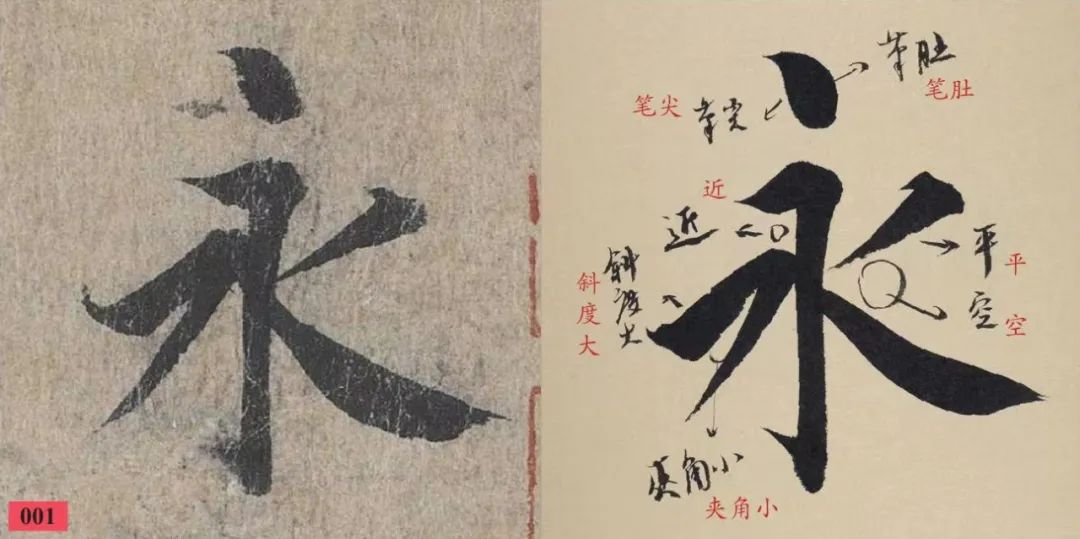 永
001
永
笔肚
笔肚
笔尖
笔尖
近
近
平
空
平
空
斜度大
斜度大
夹角小
夹角小